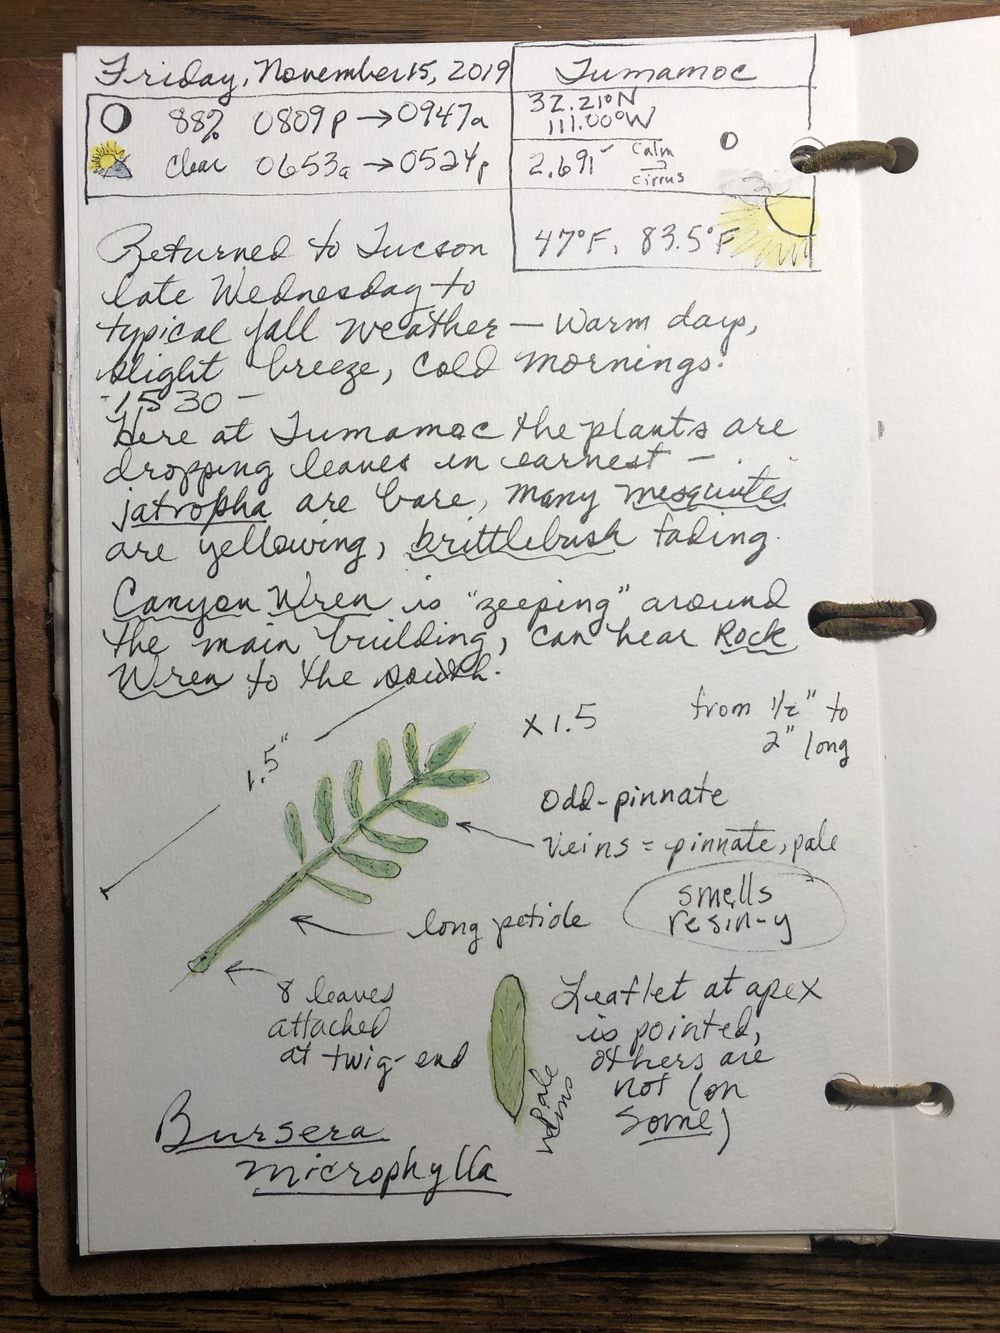 Friday, November 15, 2019
Tumamoc
88% 0809p → 0947a
Clear 0653a → 0524p
32.21°N,
111.00°W
2,691' Calm
→
cirrus
47°F, 83.5°F
Returned to Tucson
late Wednesday to
typical fall weather — warm days,
slight breeze, cold mornings.
-1530-
Here at Tumamoc the plants are
dropping leaves in earnest —
jatropha are bare, many mesquites
are yellowing, brittlebush fading.
Canyon Wren is "zeeping" around
the main building, can hear Rock
Wren to the south.
1.5"
x 1.5
from 1/2" to
2" long
Odd-pinnate
veins = pinnate, pale
smells
resin-y
long petiole
8 leaves
attached
at twig-end
pale
veins
Leaflet at apex
is pointed,
others are
not (on
some)
Bursera
microphylla